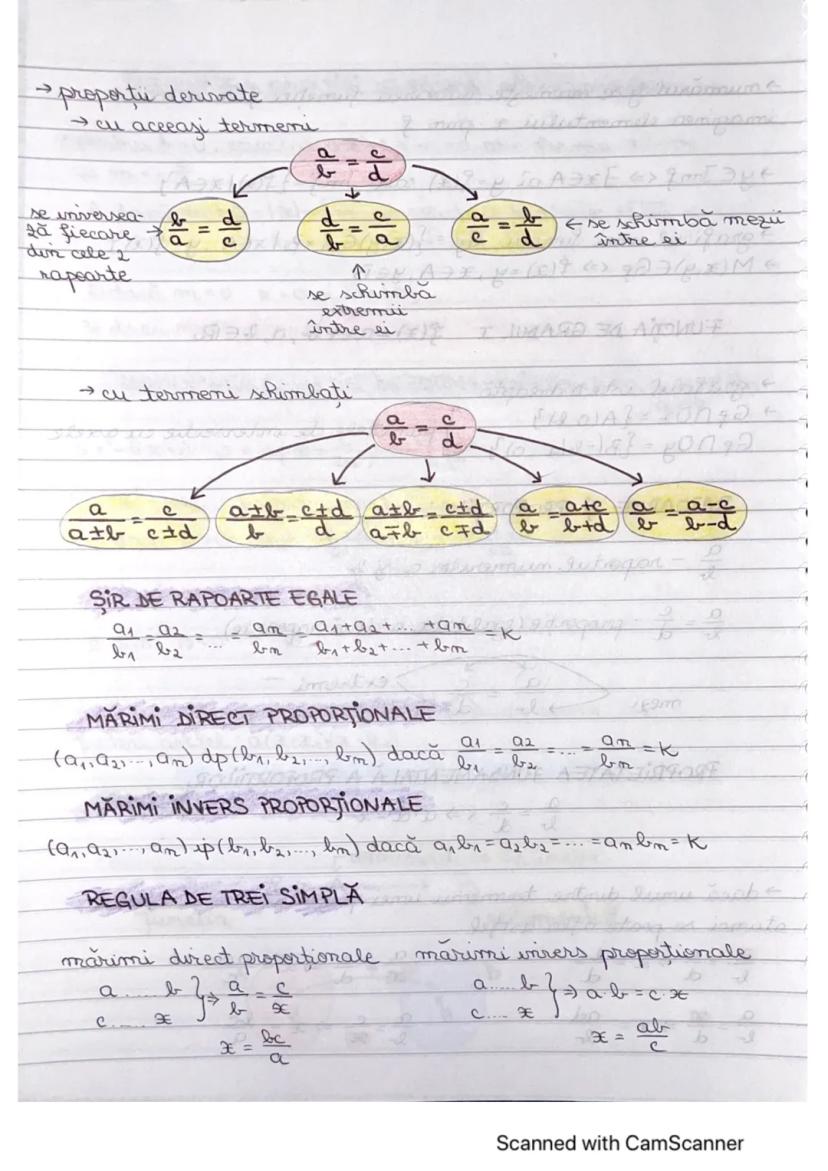 → proporții derivate
→ cu aceeași termeni
a/b = c/d
se universea-
ză fiecare → b/a = d/c
din cele 2
rapoarte
d/b = c/a
a/c = b/d ← se schimbă mezii
între ei
↑
se schimbă
extremii
între ei
→ cu termeni schimbați
a/b = c/d
a/(a±b) = c/(c±d) (a±b)/b = (c±d)/d (a±b)/(a∓b) = (c±d)/(c∓d) a/b = (a+c)/(b+d) a/b = (a-c)/(b-d)
ȘIR DE RAPOARTE EGALE
a₁/b₁ = a₂/b₂ = ... = aₙ/bₙ = (a₁+a₂+...+aₙ)/(b₁+b₂+...+bₙ) = K
MĂRIMI DIRECT PROPORȚIONALE
(a₁,a₂,...,aₙ) dp (b₁,b₂,...,bₙ) dacă a₁/b₁ = a₂/b₂ = ... = aₙ/bₙ = K
MĂRIMI INVERS PROPORȚIONALE
(a₁,a₂,...,aₙ) ip (b₁,b₂,...,bₙ) dacă a₁b₁ = a₂b₂ = ... = aₙbₙ = K
REGULA DE TREI SIMPLĂ
mărimi direct proporționale mărimi invers proporționale
a ..... b } ⇒ a/b = c/x
c ..... x
x = bc/a
a ..... b } ⇒ a·b = c·x
c .... x
x = ab/c
Scanned with CamScanner